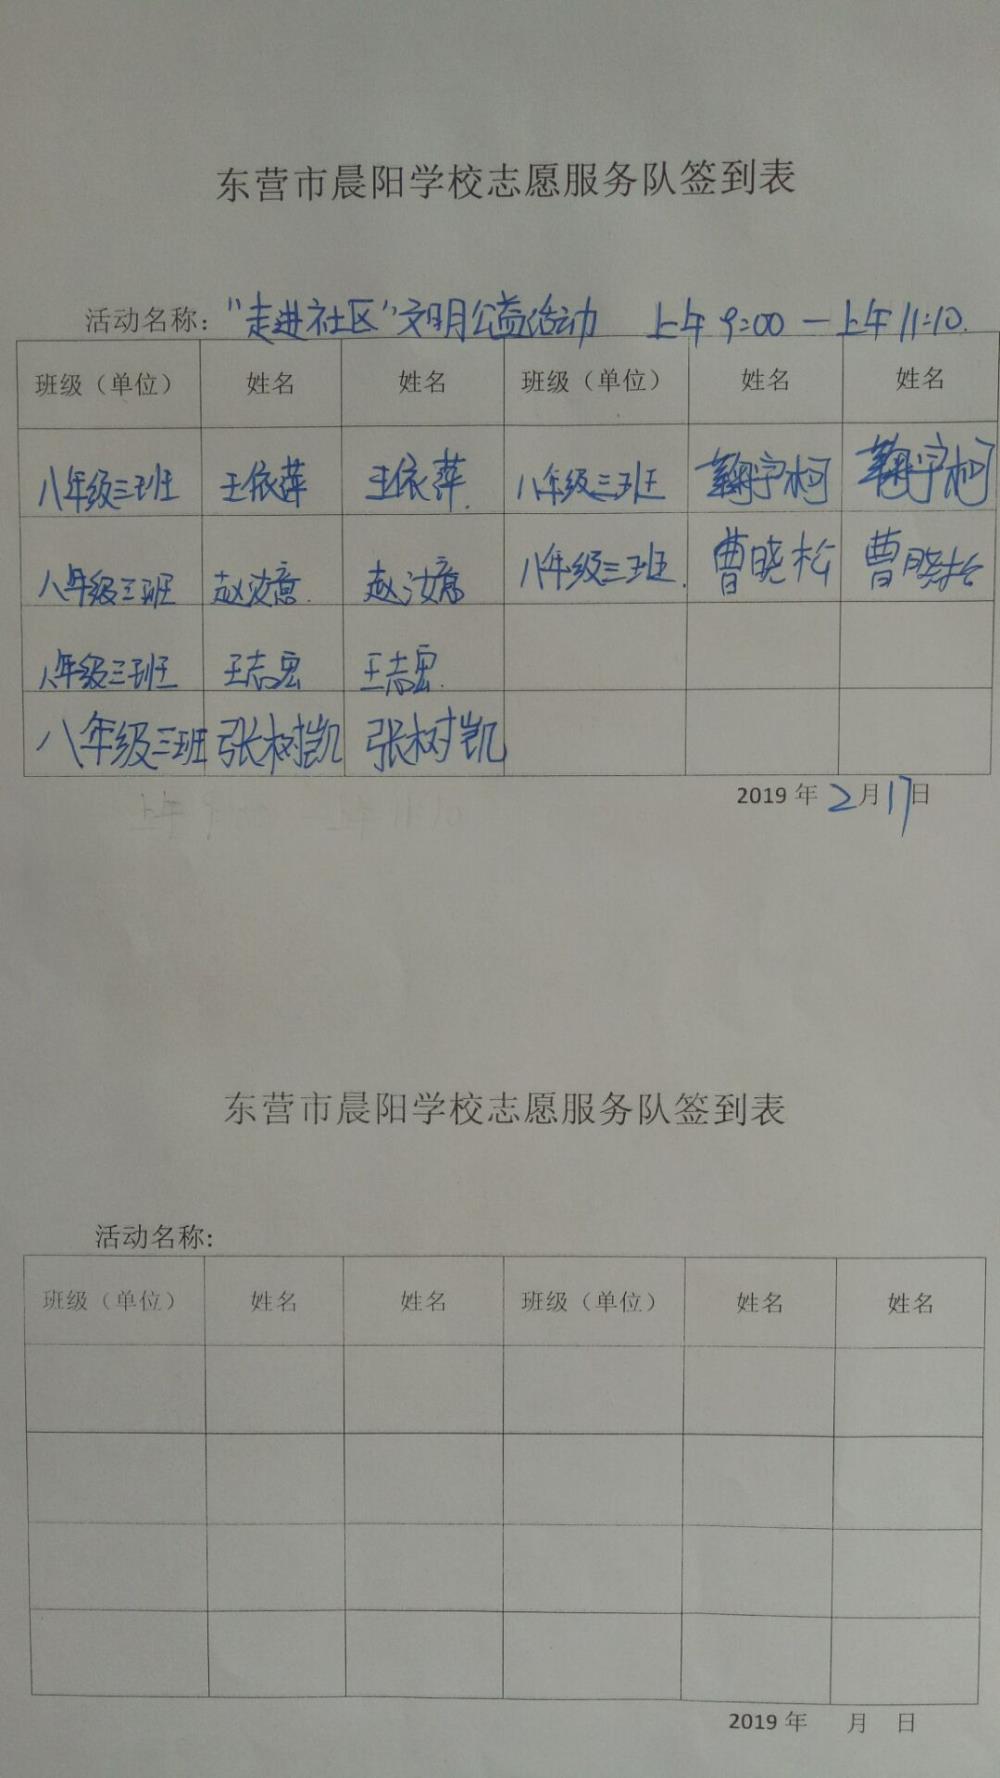 东营市晨阳学校志愿服务队签到表
活动名称：“走进社区”文明公益活动 上午9:00—上午11:10.
班级（单位） 姓名 姓名 班级（单位） 姓名 姓名
八年级三班 王依萍 王依萍. 八年级三班 鞠宇柯 鞠宇柯
八年级三班 赵汝意. 赵汝意 八年级三班. 曹晓松 曹晓松
八年级三班 王志宏 王志宏.
八年级三班 张树凯 张树凯
2019年2月17日
东营市晨阳学校志愿服务队签到表
活动名称:
班级（单位） 姓名 姓名 班级（单位） 姓名 姓名
2019年 月 日